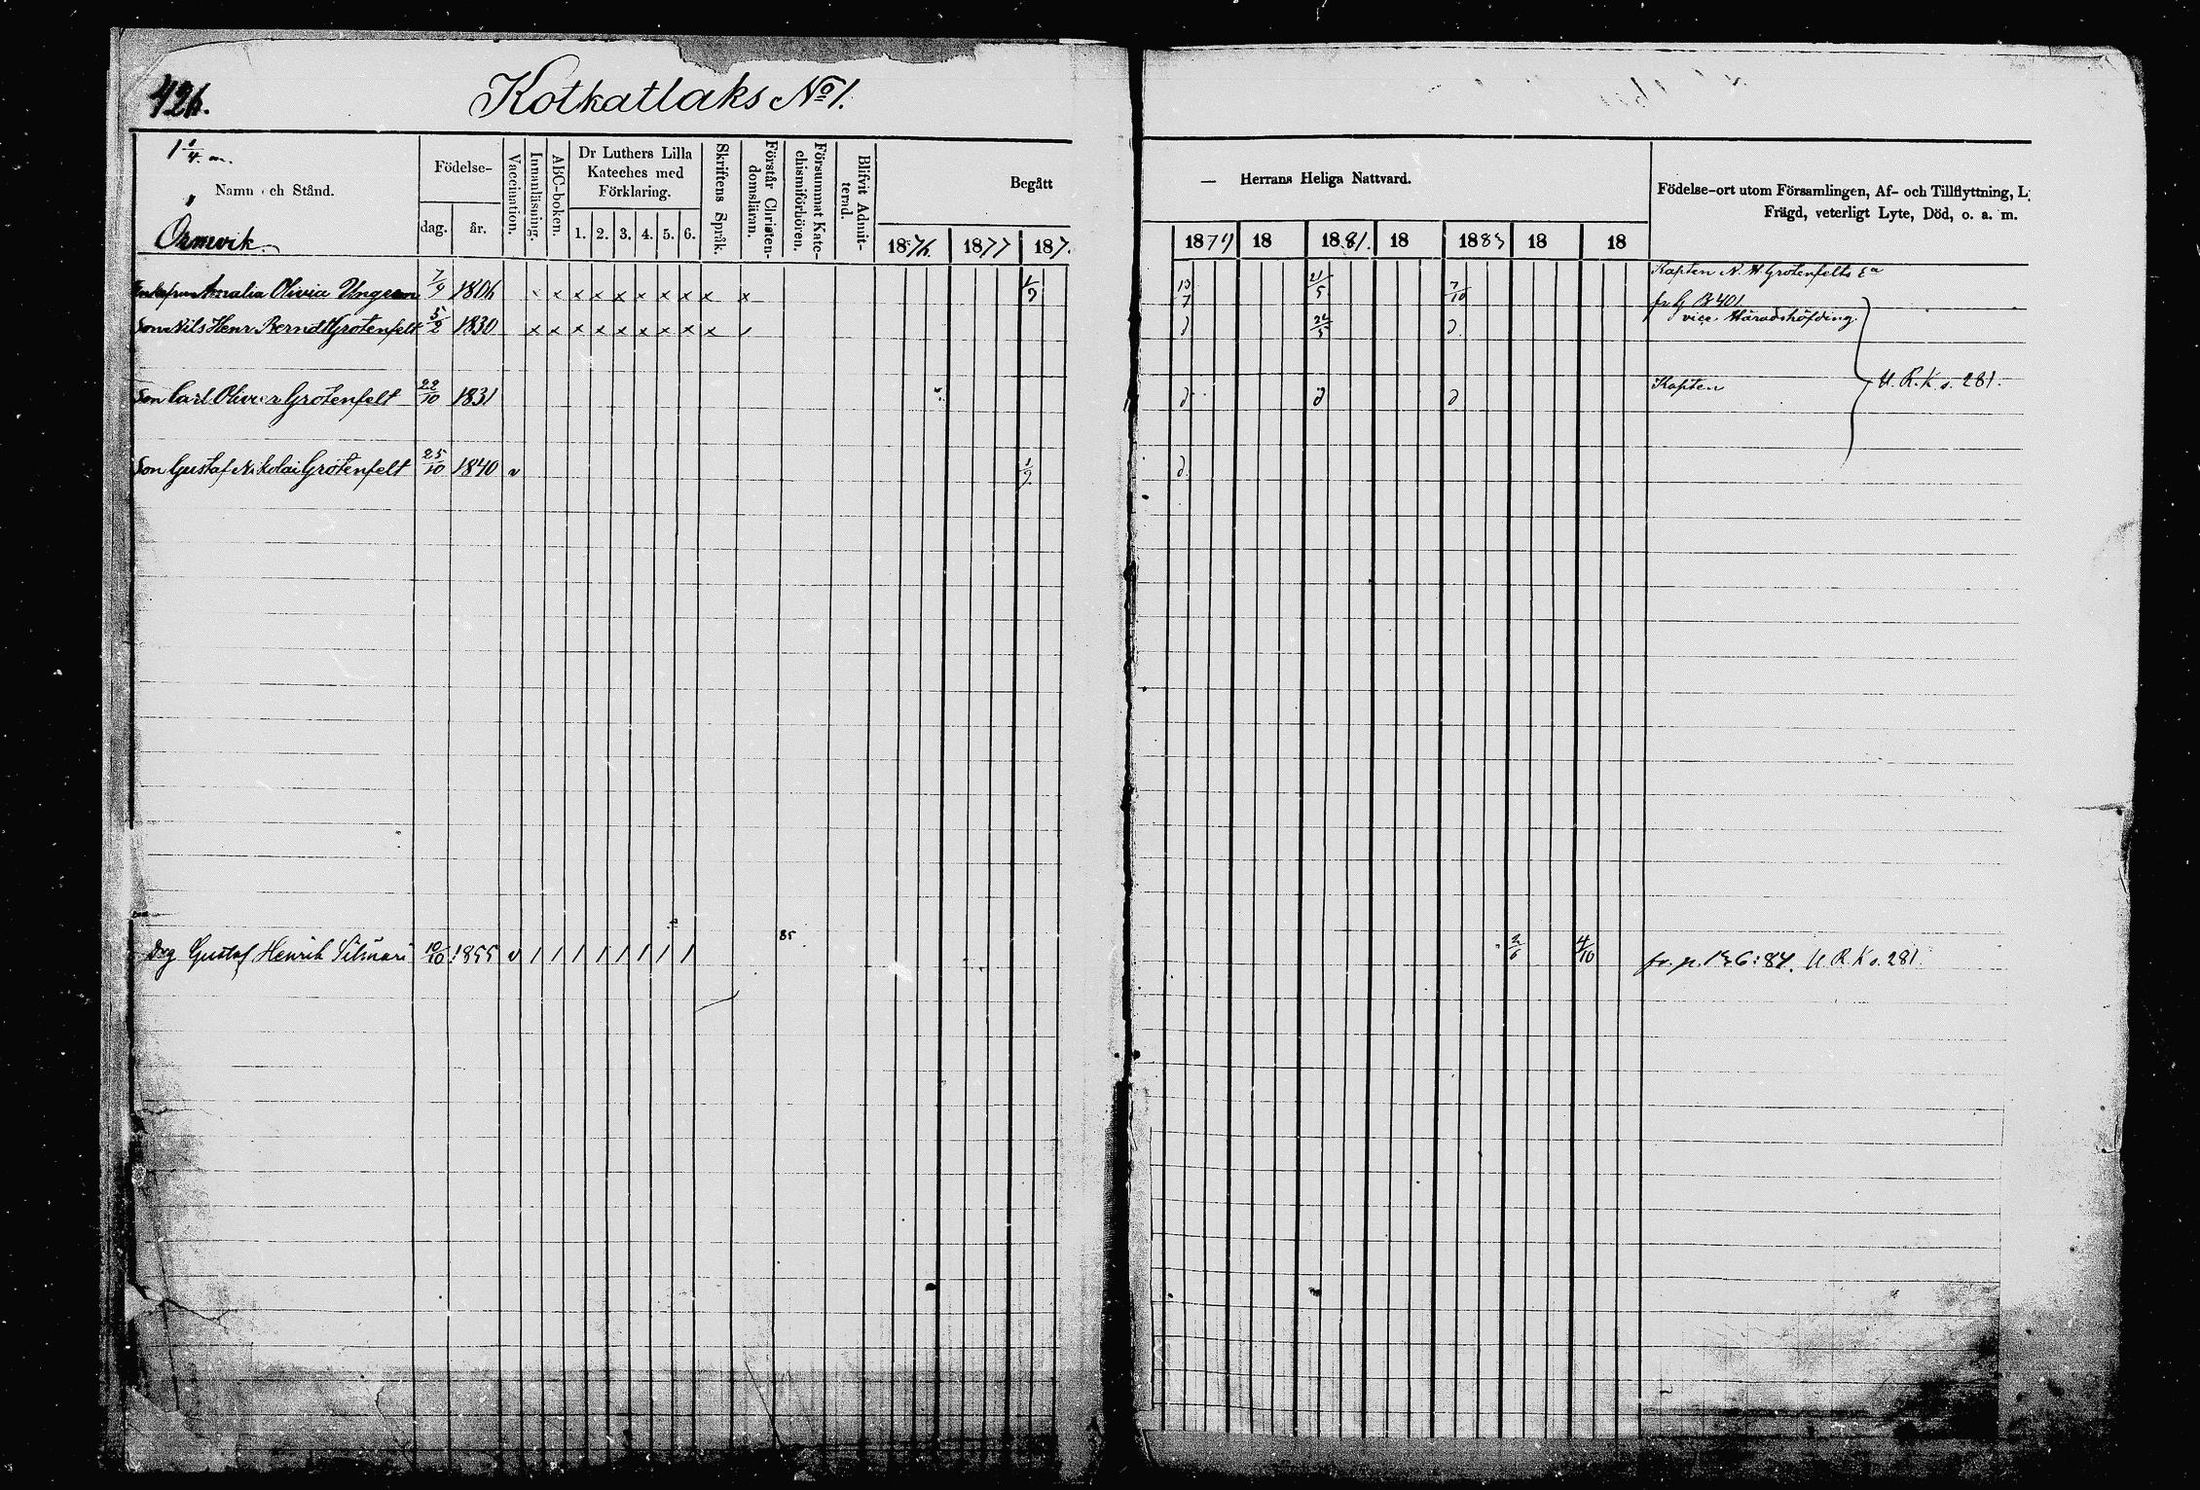 426.
Kotkatlaks No 1.
1 1/4 m.
Namn och Stånd.
Ormvik.
Födelse-
dag. år.
Vaccination.
Innanläsning.
ABC-boken.
Dr Luthers Lilla
Kateches med
Förklaring.
1. 2. 3. 4. 5. 6.
Skriftens Språk.
Förstår Christen-
domsläran.
Försummat Kate-
chismiförhören.
Blifvit Admit-
terad.
Begått
1876. 1877 187.
— Herrans Heliga Nattvard.
1879 18 1881. 18 1883 18 18
Födelse-ort utom Församlingen, Af- och Tillflyttning, L:
Frägd, veterligt Lyte, Död, o. a. m.
Enkefru Amalia Olivia Ungern 7/9 1806 x x x x x x x x x x 1/9 13/7 21/5 7/10 Kapten N. H. Grotenfelts Ea
fr G B 401
Son Nils Henr. Berndt Grotenfelt 5/2 1830 x x x x x x x x x / d 22/5 d. vice Häradshöfding.
Son Carl Olivier Grotenfelt 22/10 1831 d d d Kapten U. R. K. s. 281.
Son Gustaf Nikolai Grotenfelt 25/10 1840 v 1/9 d.
85
Drg Gustaf Henrik Silmari 10/10 1855 v / / / / / / / / 2/6 4/10 fr. p. 136: 84. U. R. K s. 281